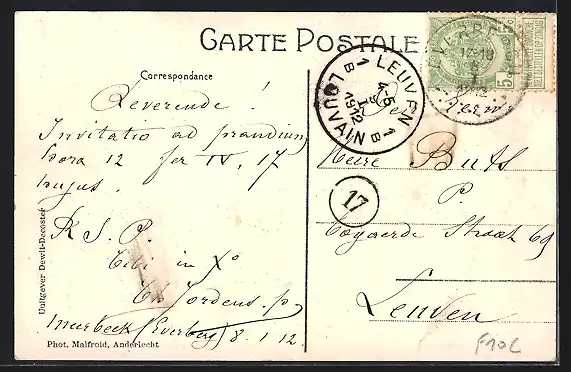 CARTE POSTALE
Correspondance
Reverende!
Invitatio ad prandium
hora 12 fer IV, 17
hujus.
R S. P.
Tibi in Xº
Th Jordens. p.
Meerbeek (Everberg) 8.1.12.
Uuitgever Dewit-Decoster
Phot. Malfroid, Anderlecht
1B LEUVEN 1B
4-5
1
1912
LOUVAIN
5c 5c
17
Heere Buts
P.
Straat 69
Leuven